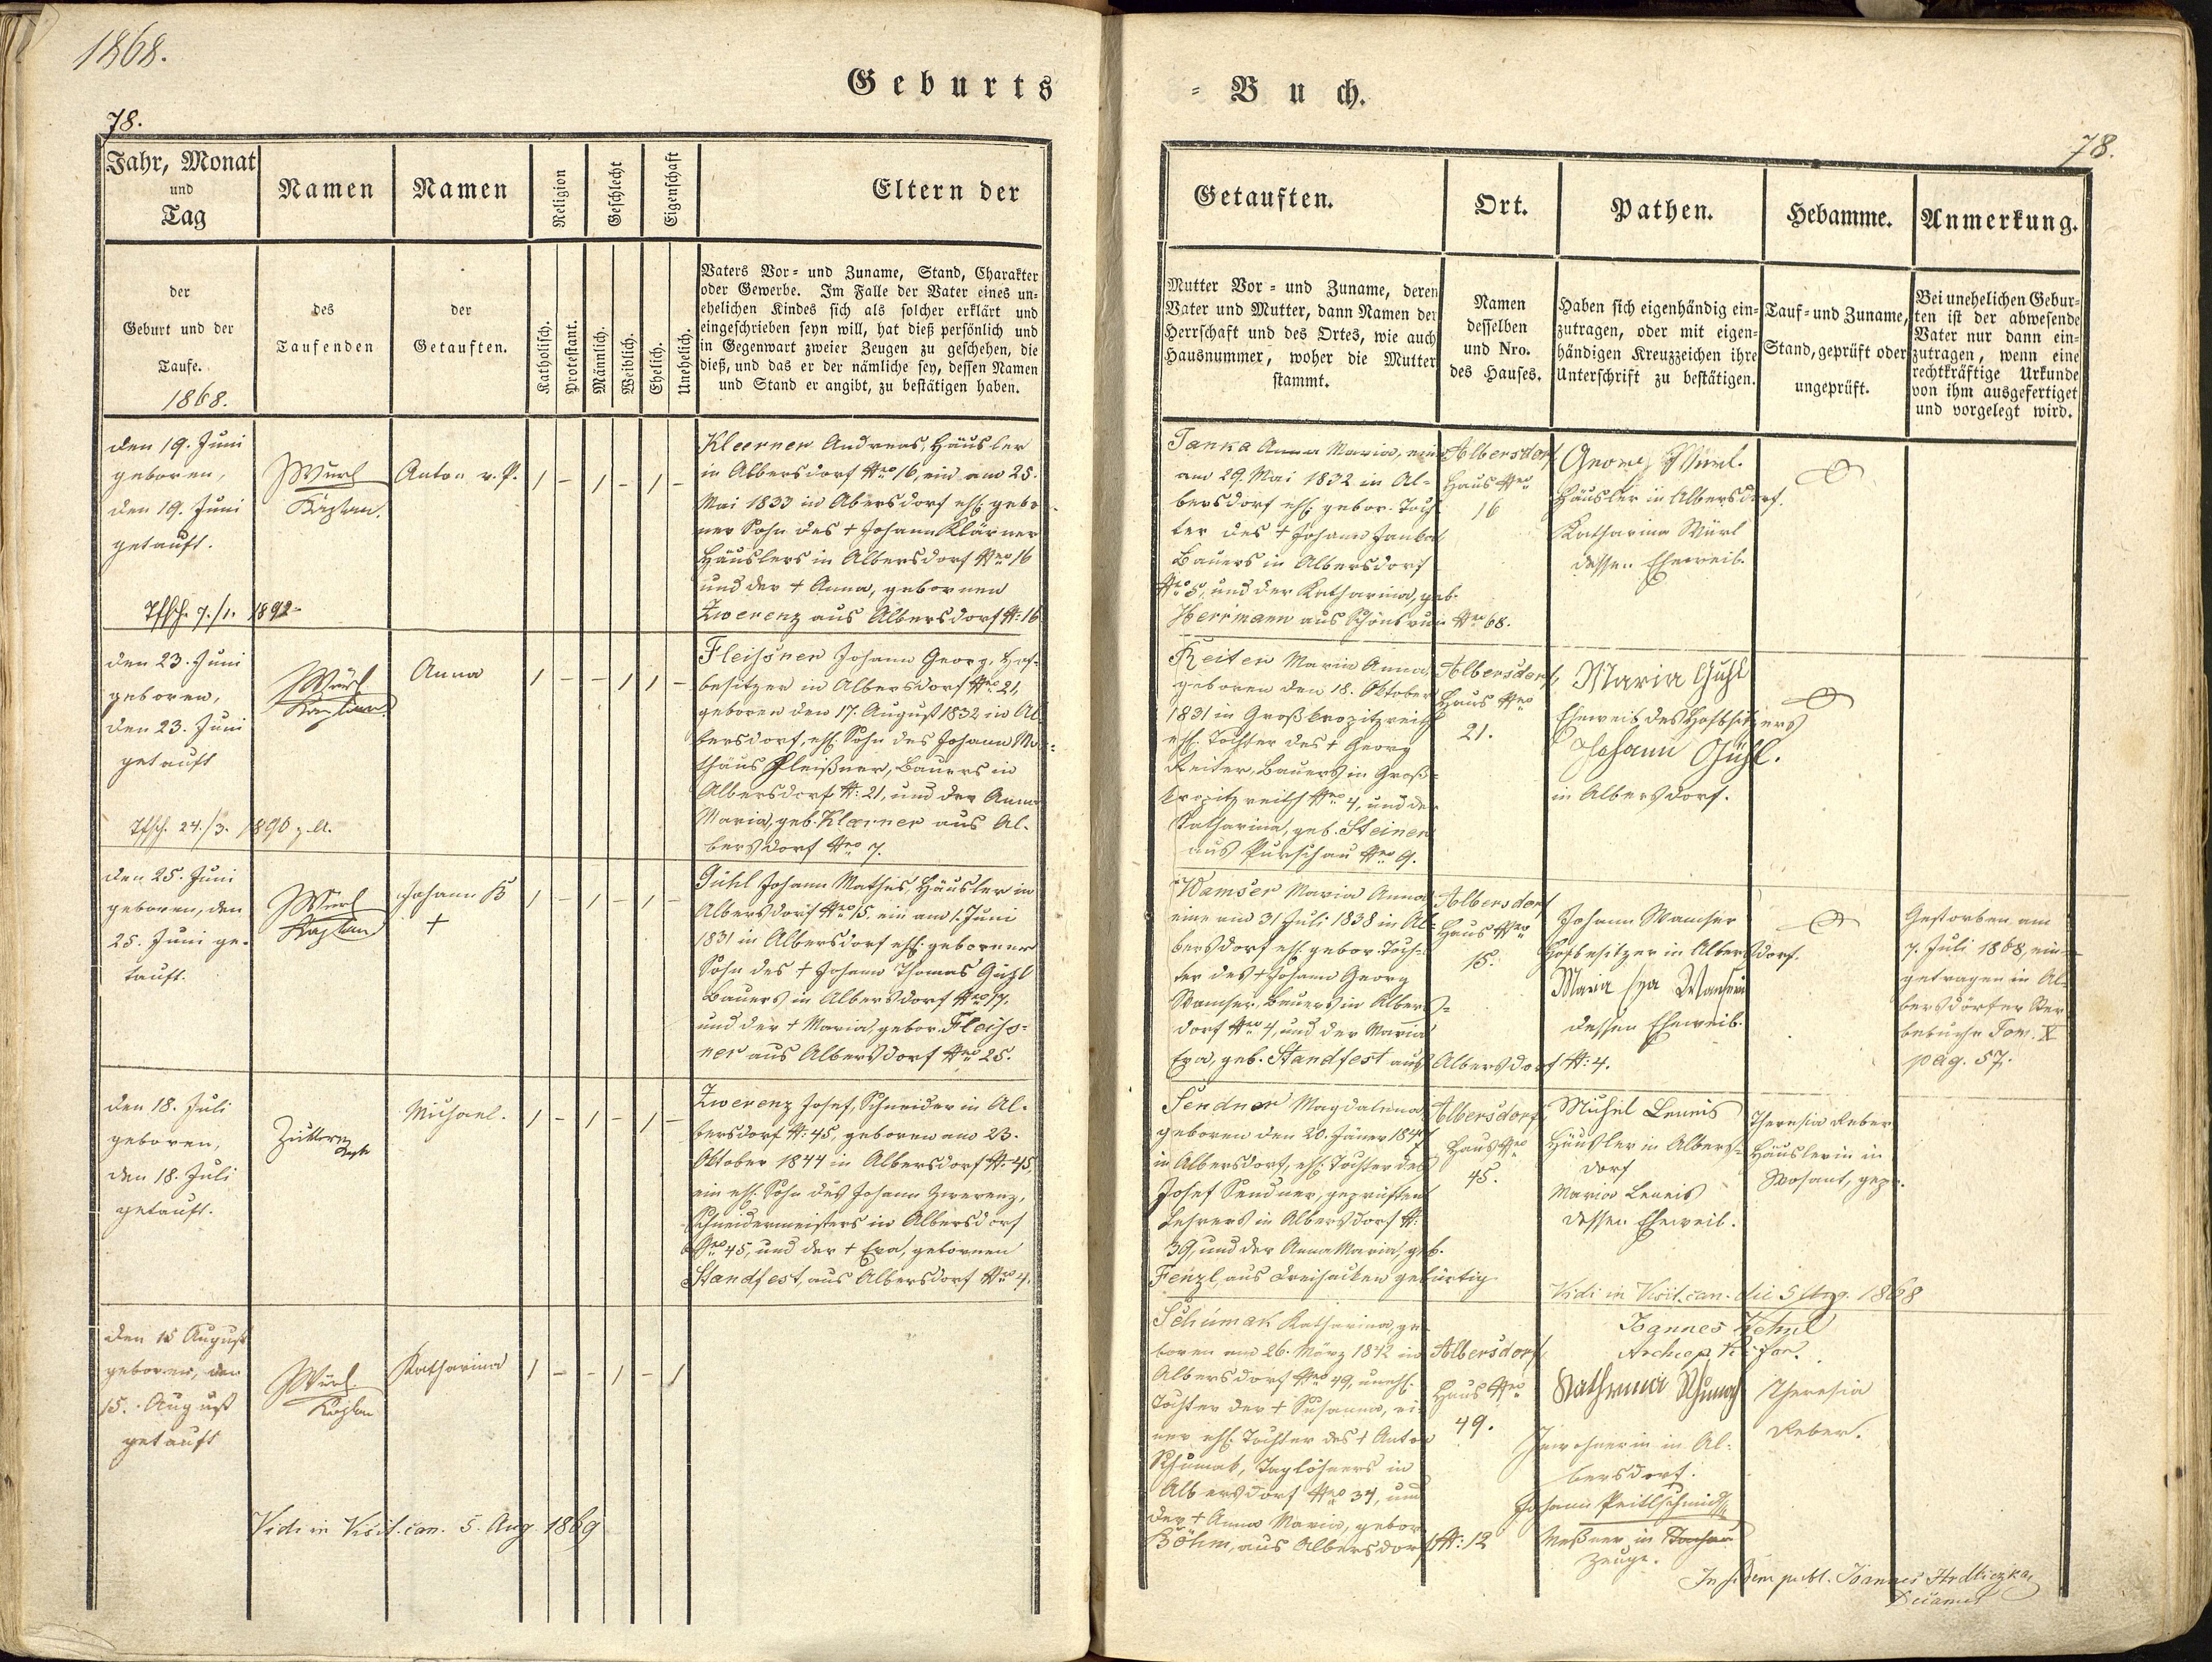 1868.
Geburts
78.
Jahr, Monat
und
Tag
Namen
Namen
Religion
Geschlecht
Eigenschaft
Eltern der
der
Geburt und der
Taufe.
1868.
des
Taufenden
der
Getauften.
Katholisch.
Protestant.
Männlich.
Weiblich.
Ehelich.
Unehelich.
Vaters Vor- und Zuname, Stand, Charakter
oder Gewerbe. Im Falle der Vater eines un-
ehelichen Kindes sich als solcher erklärt und
eingeschrieben seyn will, hat dieß persönlich und
in Gegenwart zweier Zeugen zu geschehen, die
dieß, und das er der nämliche sey, dessen Namen
und Stand er angibt, zu bestätigen haben.
den 19. Juni
geboren,
den 19. Juni
getauft.
Tfsch. 7./1. 1892
Wurl
Kaplan.
Anton v. P.
1 - 1 - 1 -
Kleerner Andreas, Häusler
in Albersdorf Nro 16, ein am 25.
Mai 1833 in Abersdorf ehl. gebor
ner Sohn des + Johann Klärner
Häuslers in Albersdorf Nro 16
und der + Anna, gebornen
Zwerenz aus Albersdorf N: 16
den 23. Juni
geboren,
den 23. Juni
getauft
Tfsch. 24./3. 1890 z. A.
Wurl
Kaplan
Anna
1 - - 1 1 -
Fleißner Johann Georg, Hof-
besitzer in Albersdorf Nro 21,
geboren den 17. August 1832 in Al
bersdorf, ehl. Sohn des Johann Ma-
thäus Fleißner, Bauers in
Albersdorf N: 21, und der Anna
Maria, geb. Klærner aus Al-
bersdorf Nro 7.
den 25. Juni
geboren, den
25. Juni ge-
tauft.
Wurl
Kaplan
Johann B
+
1 - 1 - 1 -
Gühl Johann Mathes, Häusler in
Albersdorf Nro 15, ein am 1. Juni
1831 in Albersdorf ehl. geborner
Sohn des + Johann Thomas Gühl
Bauers in Albersdorf Nro 17,
und der + Maria, gebor. Fleiss-
ner aus Albersdorf Nro 25.
den 18. Juli
geboren,
den 18. Juli
getauft.
Michael.
1 - 1 - 1 -
Zwerenz Josef, Schneider in Al-
bersdorf N: 45, geboren am 23.
Oktober 1844 in Albersdorf N. 45,
ein ehl. Sohn des Johann Zwerenz,
Schneidermeisters in Albersdorf
Nro 45, und der + Eva, gebornen
Standfest, aus Albersdorf Nro 4.
den 15 August
geboren, den
15. August
getauft
Wurl
Kaplan
Katharina
1 - - 1 - 1
Vidi in Visit. can. 5. Aug. 1869
- Buch.
78.
Getauften.
Ort.
Pathen.
Hebamme.
Anmerkung.
Mutter Vor- und Zuname, deren
Vater und Mutter, dann Namen der
Herrschaft und des Ortes, wie auch
Hausnummer, woher die Mutter
stammt.
Namen
desselben
und Nro.
des Hauses.
Haben sich eigenhändig ein-
zutragen, oder mit eigen-
händigen Kreuzzeichen ihre
Unterschrift zu bestätigen.
Tauf- und Zuname,
Stand, geprüft oder
ungeprüft.
Bei unehelichen Gebur-
ten ist der abwesende
Vater nur dann ein-
zutragen, wenn eine
rechtkräftige Urkunde
von ihm ausgefertiget
und vorgelegt wird.
Janka Anna Maria, eine
am 29. Mai 1832 in Al-
bersdorf ehl. gebor. Toch
ter des + Johann Janka
Bauers in Albersdorf
Nro 5, und der Katharina, geb.
Herrmann aus Schönbrunn Nro 68.
Albersdorf
Haus Nro
16
Georg Würl.
Häusler in Albersdorf.
Katharina Würl
dessen Eheweib.
Reiter Maria Anna
geboren den 18. Oktober
1831 in Großkropitzreith
ehl. Tochter des + Georg
Reiter, Bauers in Groß-
kropitzreith Nro 4, und der
Katharina, geb. Steiner
aus Purschau Nro 9.
Albersdorf,
Haus Nro
21.
Maria Gühl
Eheweib des Hofbesitzers
Johann Gühl.
in Albersdorf.
Wamser Maria Anna
eine am 31 Juli 1838 in Al-
bersdorf ehl. gebor. Toch-
ter des + Johann Georg
Wamser, Bauers in Albers-
dorf Nro 4, und der Maria
Eva, geb. Standfest aus Albersdorf N: 4.
Albersdorf
Haus Nro
15.
Johann Wamser
Hofbesitzer in Albersdorf.
Maria Eva Wamser
dessen Eheweib.
Gestorben am
7. Juli 1868, ein-
getragen in Al-
bersdorfer Ster
bebuche Tom. X
pag. 57.
Sendner Magdalena
geboren den 20. Jäner 1847
in Albersdorf, ehl. Tochter des
Josef Sendner, geprüften
Lehrers in Albersdorf N:
39, und der Anna Maria, geb.
Fenzl, aus Dreihacken gebürtig
Albersdorf
Haus Nro
45.
Michel Leneis
Häusler in Albers-
dorf
Maria Leneis
dessen Eheweib.
Theresia Reber
Häuslerin in
Wosant, gepr.
Vidi in Visit. can. die 5 Aug. 1868
Joannes
Archiep. Vic. for.
Schimak Katharina, ge-
boren am 26. März 1842 in
Albersdorf Nro 49, unehl.
Tochter der + Susanna, ei-
ner ehl. Tochter des + Anton
Schumak, Taglöhners in
Albersdorf Nro 34, und
der + Anna Maria, gebor.
Böhm, aus Albersdorf N: 12
Albersdorf
Haus Nro
49.
Kathrina Schumak
Inwohnerin in Al-
bersdorf.
Johann Peitlschmidt
Meßner in Tachau
Zeuge.
Theresia
Reber.
In fidem publ. Joannes Hrdliczka,
Decanus